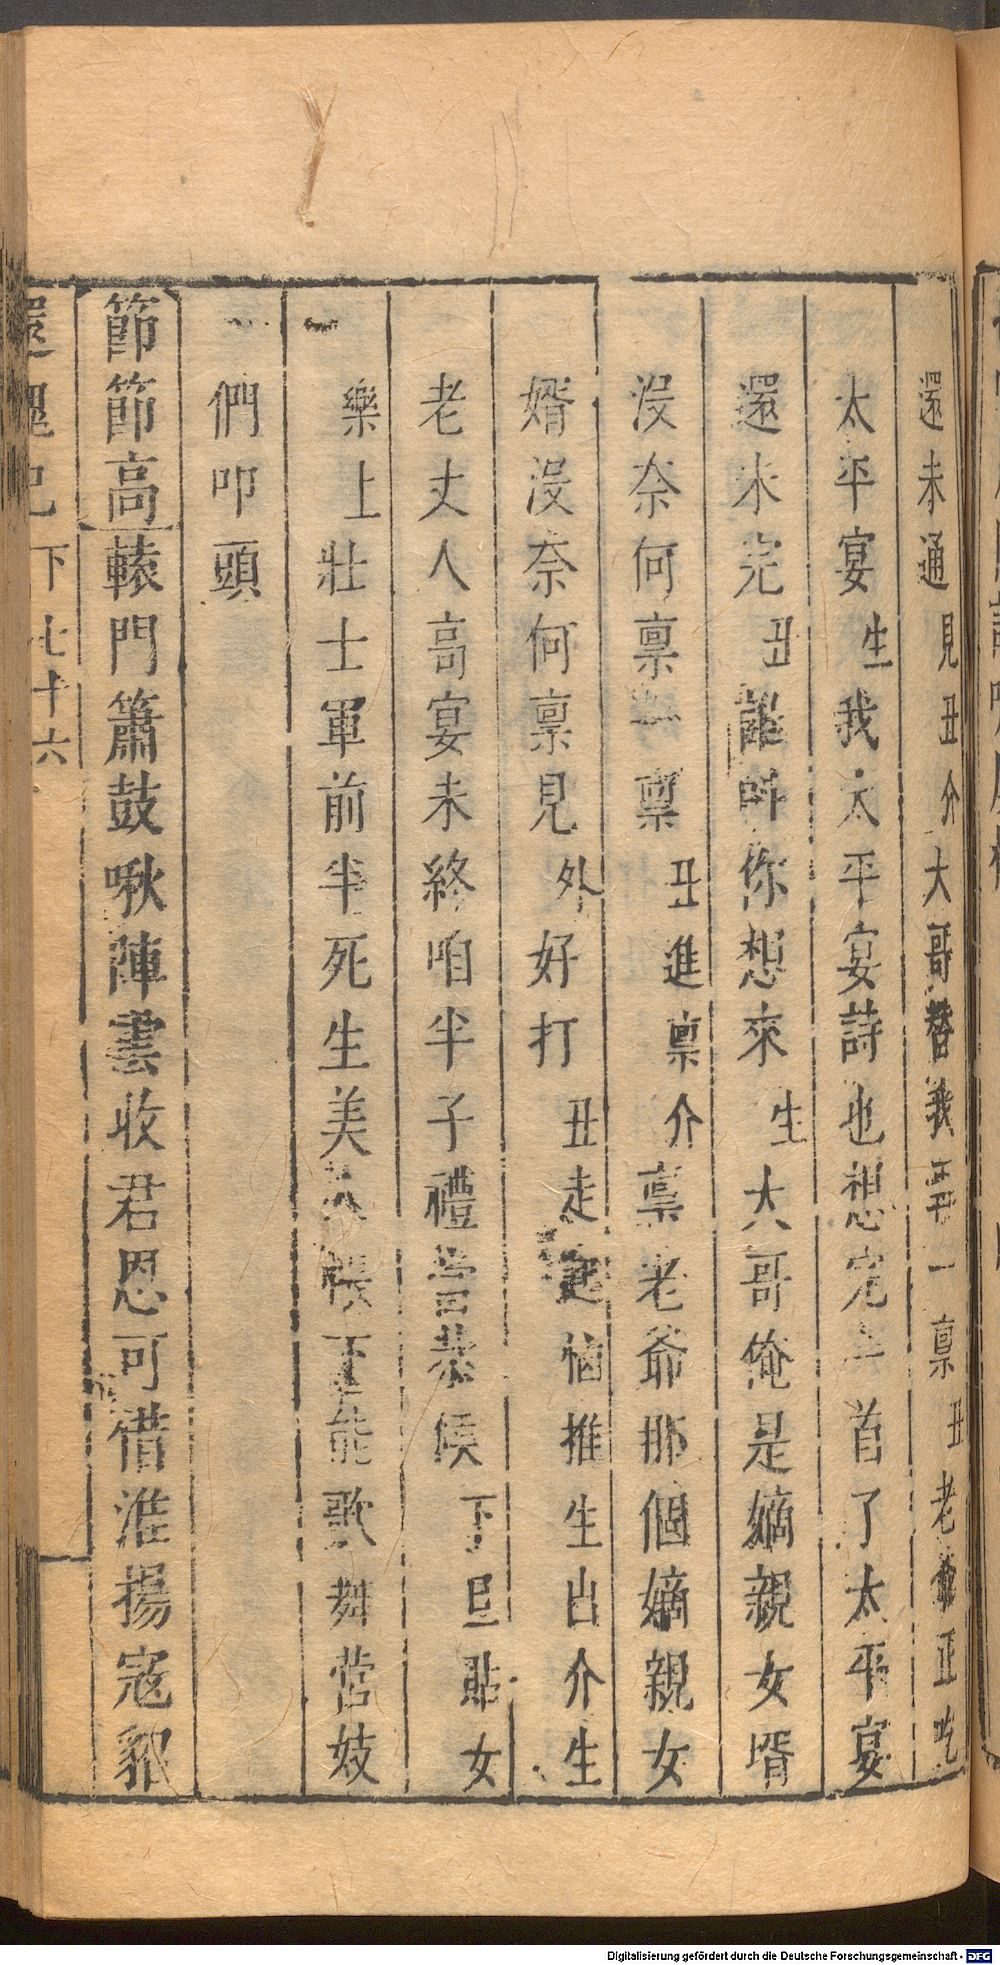 還未通見丑介大哥替我再一禀丑老爺正吃
太平宴生我太平宴詩也想完一首了太平宴
還未完丑誰呌你想來生大哥俺是嫡親女壻
沒奈何禀一禀丑進禀介禀老爺那個嫡親女
婿沒奈何禀見外好打丑走起惱推生出介生
老丈人高宴未終咱半子禮當恭候下旦貼女
樂上壯士軍前半死生美人帳下能歌舞營妓
們叩頭
節節高轅門簫鼓啾陣雲收君恩可借淮揚寇貂
還魂記下七十六
Digitalisierung gefördert durch die Deutsche Forschungsgemeinschaft - DFG